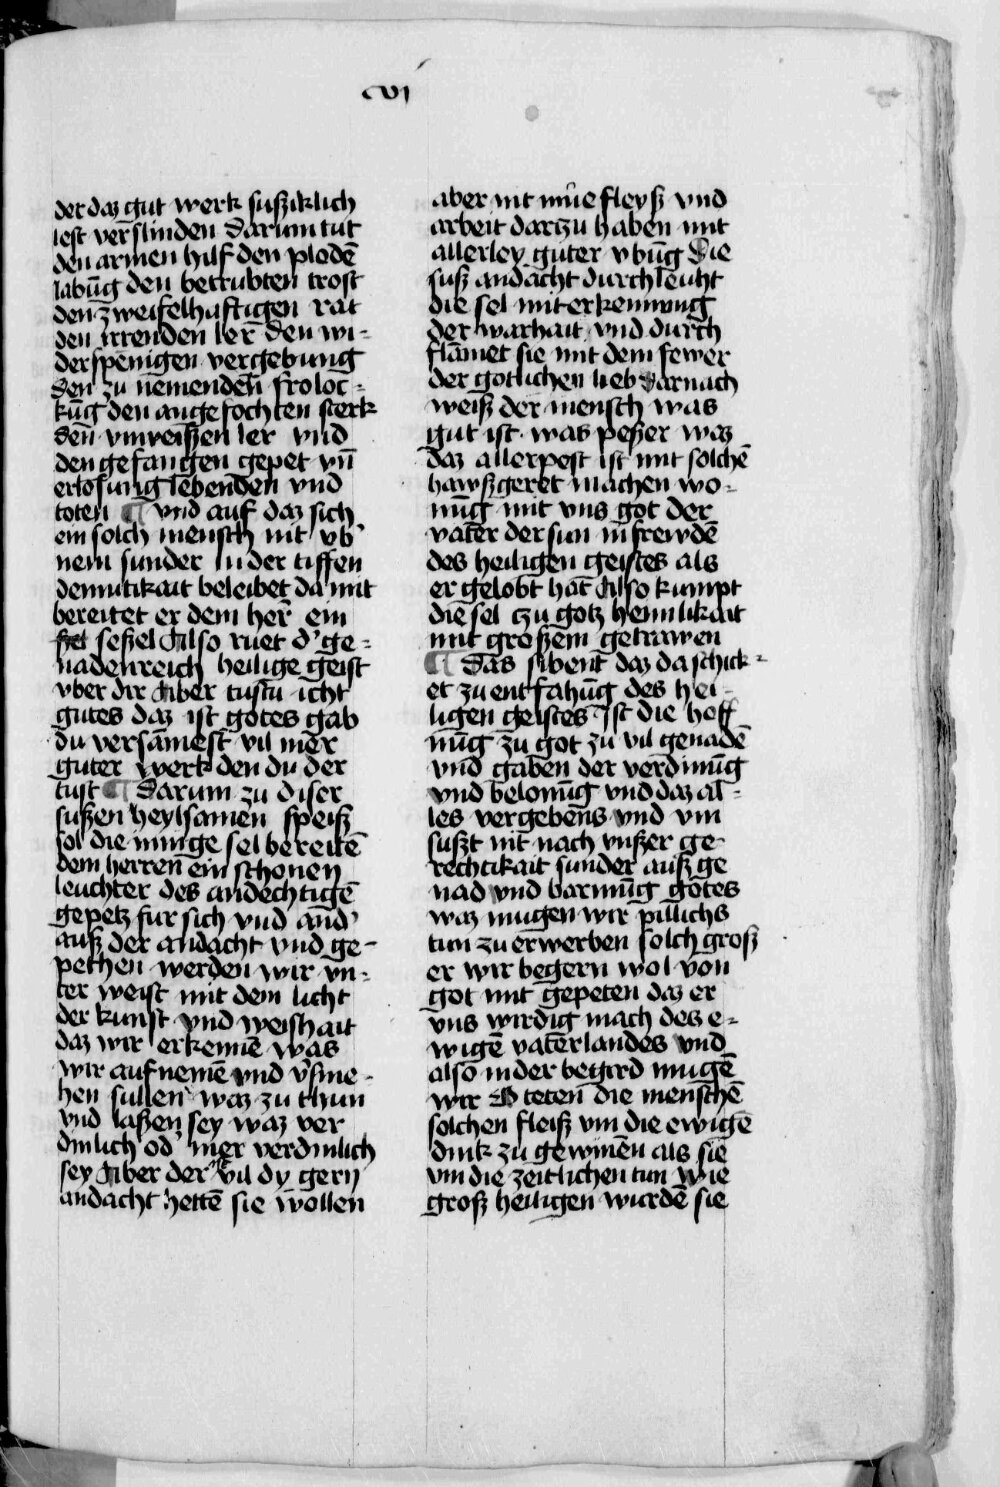 cvi
der daz gut werk sußiklich
lest verslinden Darum tut
den armen hilf den plodē
labūg den betrubten trost
den zweifelhaftigen rat
den irrenden ler den wi-
derspenigen vergebung
den zu nemenden froloc-
kūg den angefochten sterk
den vnweißen ler vnd
den gefangen gepet vn̄
erlosung lebenden vnd
toten ¶ vnd auf daz sich
ein solch mensch nit vb'
nem sunder in der tiffen
demutikait beleibet da mit
bereitet er dem her̄ ein
seßel Also ruet d' ge-
nadenreich heilige geist
vber dir Aber tustu icht
gutes daz ist gotes gab
du versamest vil mer
guter werk den du der
tust ¶ Darum zu diser
sußen heylsamen speiß
sol die innige sel bereitē
dem herren ein schonen
leuchter des andechtigē
gepetz fur sich vnd and'
auß der andacht vnd ge-
pethen werden wir vn-
ter weist mit dem licht
der kunst vnd weishait
daz wir erkennē was
wir auf nemē vnd v'sme-
hen sullen waz zu thun
vnd laßen sey waz ver
dinlich od' mer verdinlich
sey Aber der vil dy gern
andacht hettē sie wollen
aber nit mue fleyß vnd
arbeit darzu haben mit
allerley guter vbūg Die
suß andacht durch leuht
die sel mit erkennung
der warhait vnd durch
flamet sie mit dem fewer
der gotlichen lieb Darnach
weiß der mensch was
gut ist was peßer waz
daz allerpest ist mit solchē
hawßgeret machen wo-
nūg mit vns got der
vater der sun in frewdē
des heiligen geistes als
er gelobt hat Also kumpt
die sel zu gotz heimlikait
mit großem getrawen
¶ Das sibent daz da schick-
et zu entfahūg des hei-
ligen geistes Ist die hoff
nūg zu got zu vil genadē
vnd gaben der verdinūg
vnd belonūg vnd daz al-
les vergebens vnd vm
sußt nit nach vnßer ge
rechtikait sunder auß ge
nad vnd barmūg gotes
waz mugen wir pillichs
tun zu erwerben solch groß
er wir begern wol von
got mit gepeten daz er
vns wirdig mach des e-
wigē vaterlandes vnd
also in der begird mugē
wir O teten die menschē
solchen fleiß vm die ewigē
dink zu gewinen als sie
vm die zeitlichen tun wie
groß heiligen wurdē sie